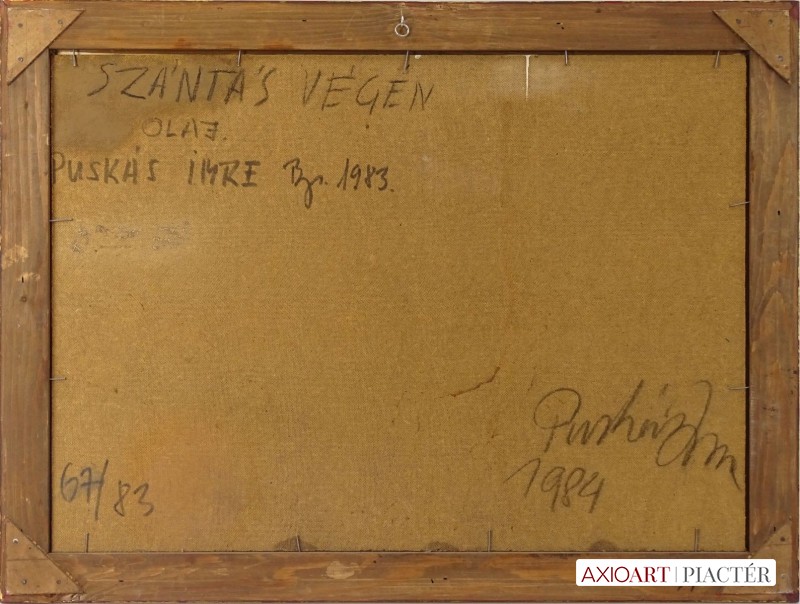 SZÁNTÁS VÉGÉN
OLAJ.
PUSKÁS IMRE Bp. 1983.
67/83
Puskás Im
1984
AXIOART | PIACTÉR